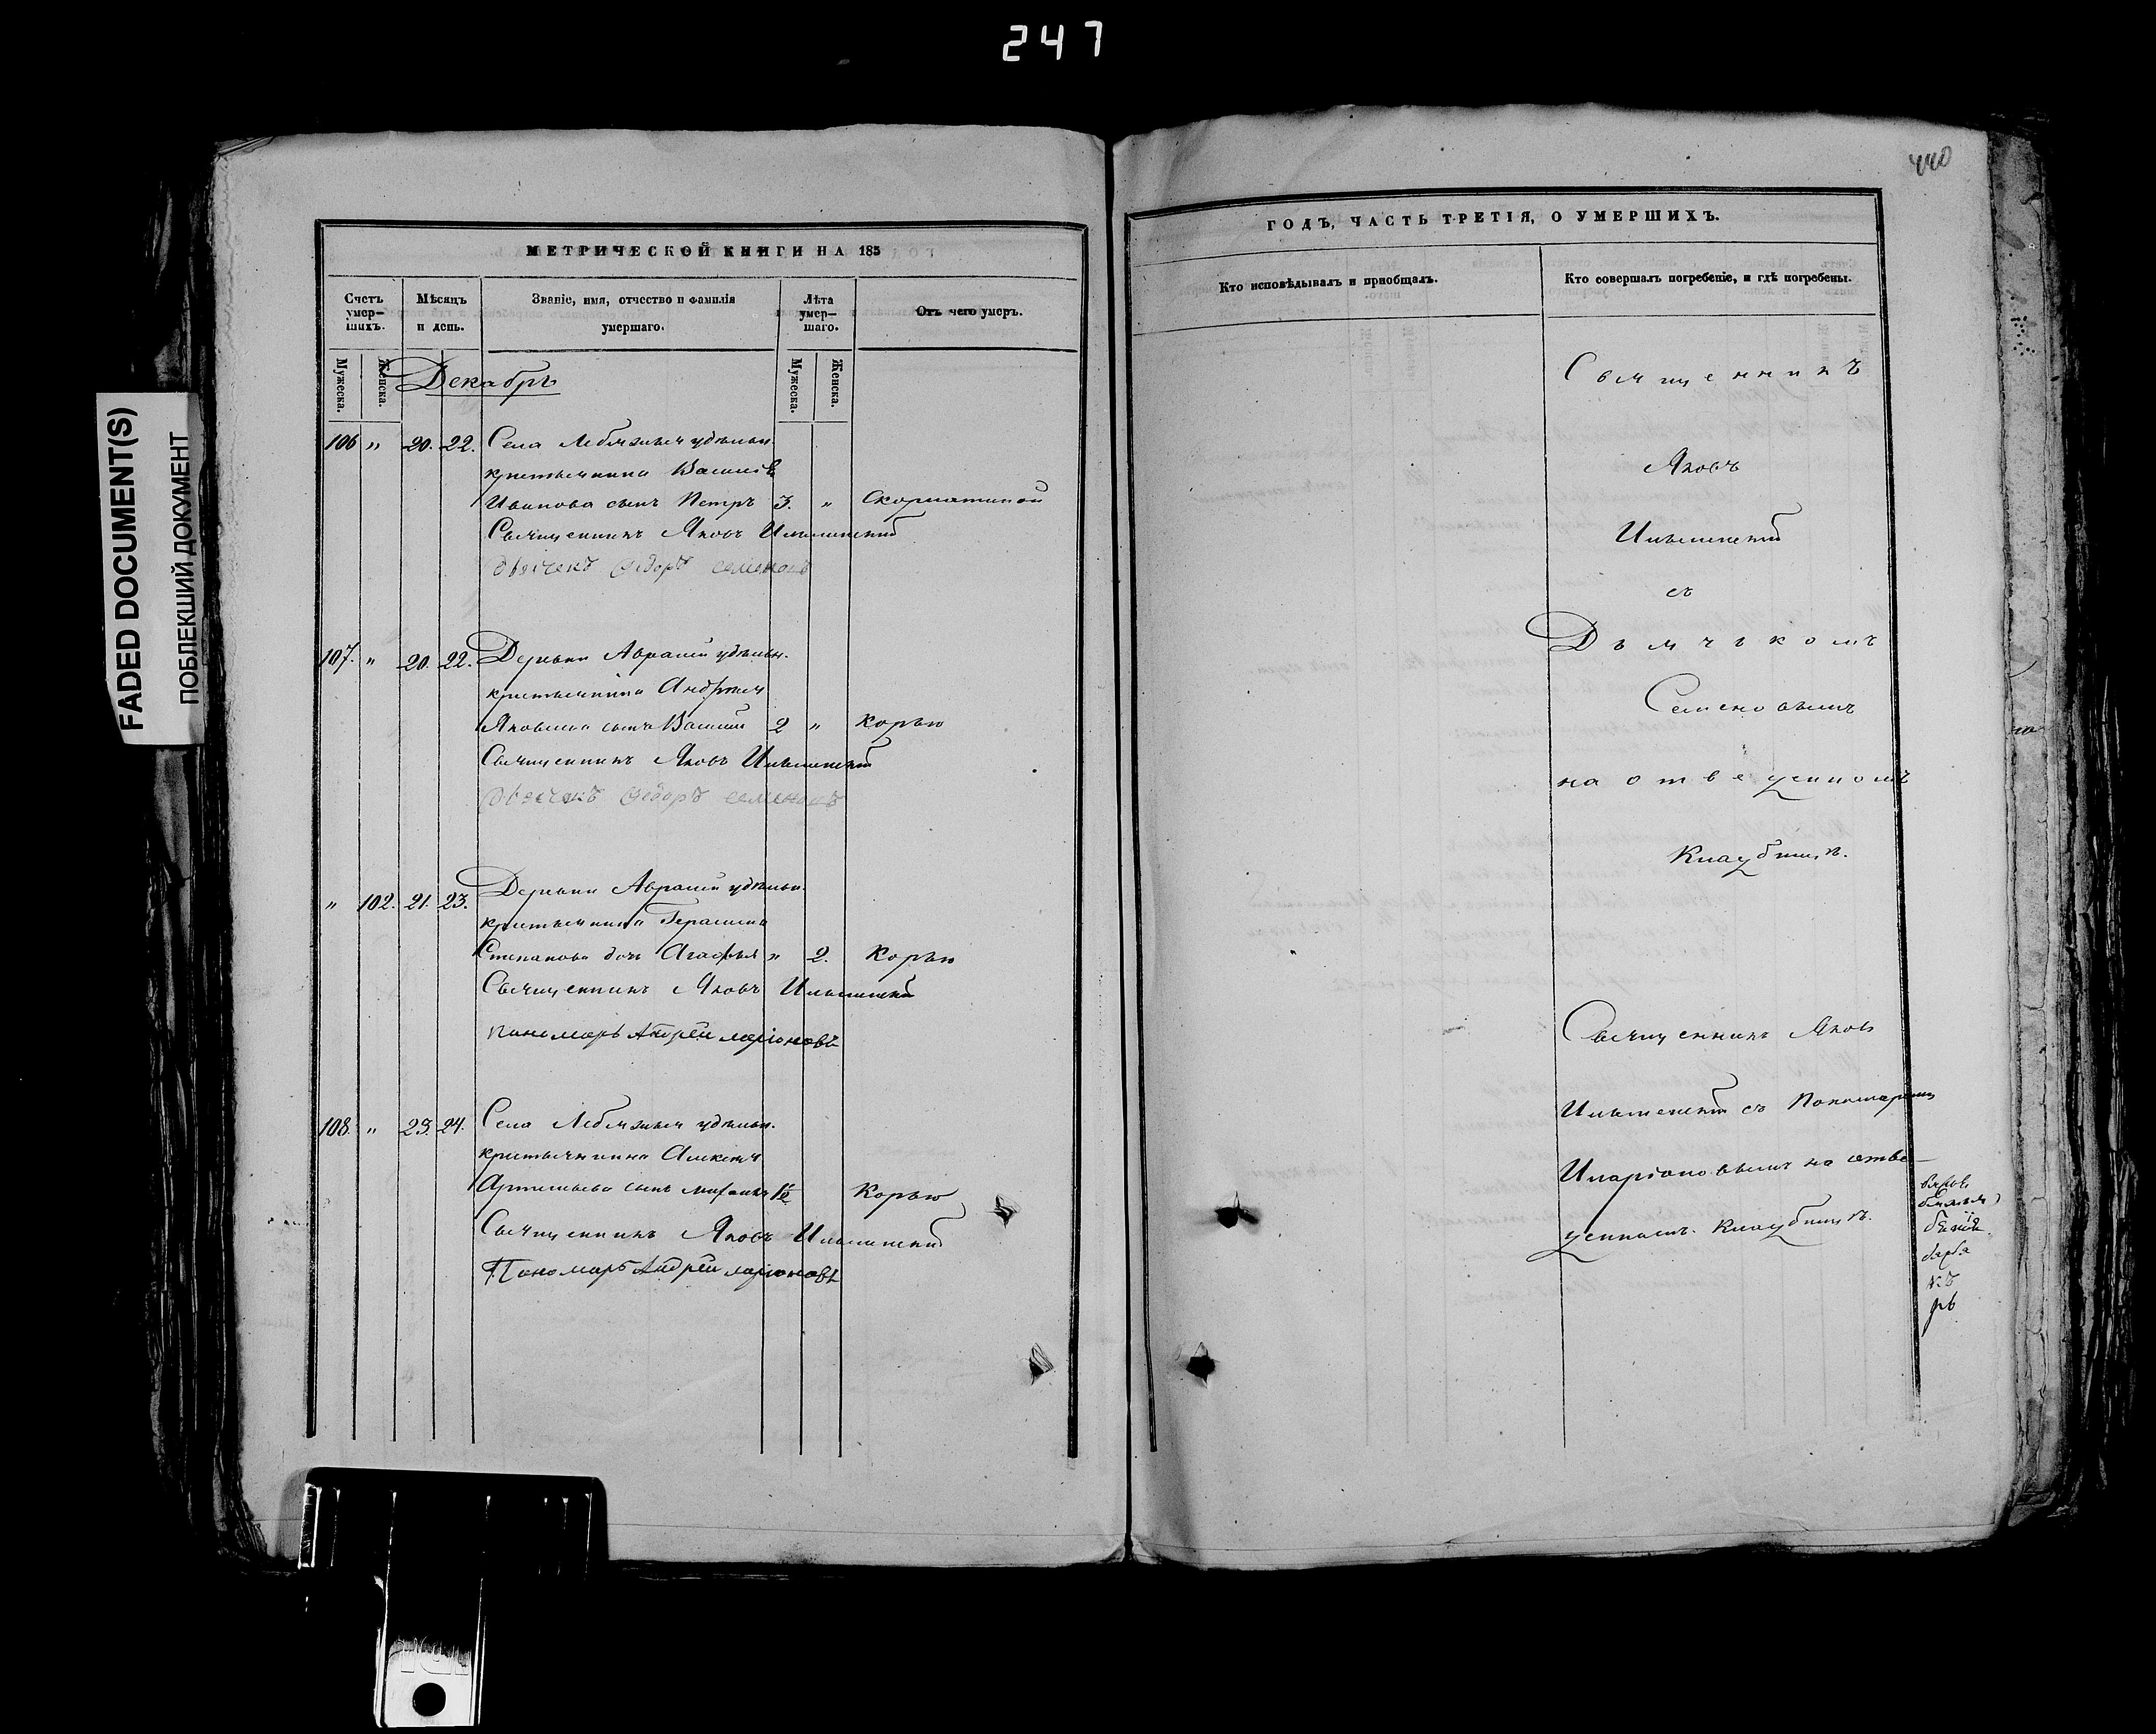 247
440
FADED DOCUMENT(S)
ПОБЛЕКШИЙ ДОКУМЕНТ
МЕТРИЧЕСКОЙ КНИГИ НА 185
Счетъ умер-шихъ.
Мѣсяцъ и день.
Званіе, имя, отчество и фамилія умершаго.
Лѣта умер-шаго.
Отъ чего умеръ.
Мужеска.
Женска.
Мужеска.
Женска.
Декабрь
106 " 20. 22. Села Лебяжья удѣльн.
крестьянина Василія
Иванова сынъ Петръ 3. " Скорлатиной
Священникъ Яковъ
дьячекъ Федоръ Семеновъ
107. " 20. 22. Деревни Авралей удѣльн.
крестьянина Андрея
Яковлева сынъ Василій 2 " Корью
Священникъ Яковъ
дьячекъ Федоръ Семеновъ
" 102. 21. 23. Деревни Авралей удѣльн.
крестьянина Герасима
Степанова дочь Агафья " 2. Корью
Священникъ Яковъ
пономарь Андрей ларіоновъ
108. " 23. 24. Села Лебяжья удѣльн.
крестьянина Алексѣя
Артемьева сынъ 1/2 Корью
Священникъ Яковъ
Пономарь Андрей ларіоновъ
ГОДЪ, ЧАСТЬ ТРЕТІЯ, О УМЕРШИХЪ.
Кто исповѣдывалъ и пріобщалъ.
Кто совершалъ погребеніе, и гдѣ погребены.
Священникъ
Яковъ
съ
Дьячькомъ
Семеновымъ
на отве денномъ
Кладбищѣ.
Священникъ Яковъ
съ Пономаремъ
Иларіоновымъ на отве-
денномъ. Кладбищѣ.